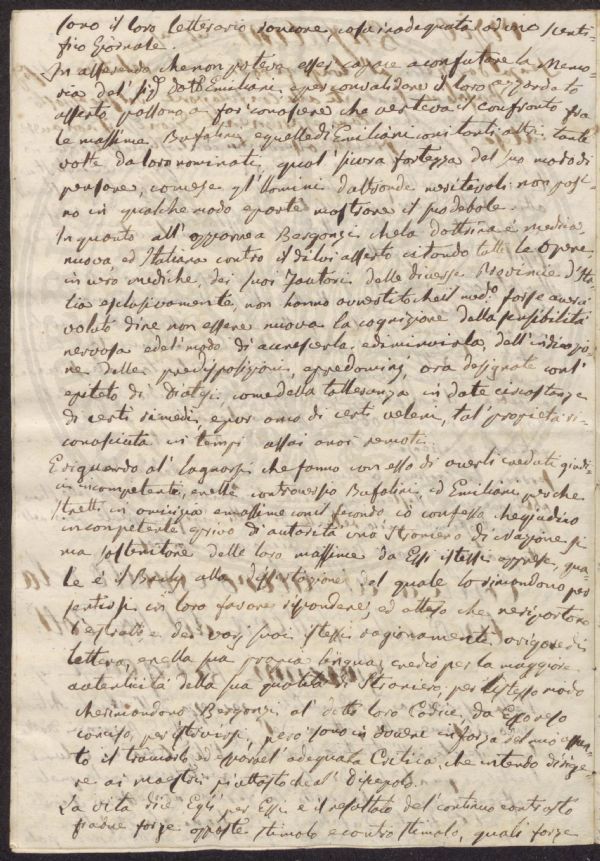 sono il loro letterario
fico Giornale.
In asserendo che non poteva esser capace a confutare la Memo-
ria del Sig.r Dott.r Emiliani, e per consalidare il loro azzardato
asserto passono a far conoscere che verteva il confronto fra
le massime Bufalini, e quelle di Emiliani con tanti altri tante
volte da loro nominati, qual sicura fortezza del suo modo di
pensare, come se gl'Uomini d'altronde meritevoli non possi-
no in qualche modo e parte mostrare il suo debole.
In quanto all' Bergonzi che la dottrina è medica,
nuova ed Italiana contro il di lui asserto citando tutte le Opere
in vero mediche, dei suoi Fautori delle diverse Provincie d'Ita-
lia esclusivamente, non hanno avvertito che il med.o forse avria
voluto dire non essere nuova la cognizione della sensibilità
nervosa e del modo di accrescerla, e diminuirla, dall'indicazio-
ne delle predisposizioni, ora designate coll'
epiteto di Diatesi, come della tolleranza in date circostanze
di certi rimedj, e pur anco di certi veleni, tal proprietà ri-
conosciuta in tempi assai anzi remoti.
E riguardo al lagnarsi che fanno con esso di averli creduti giudi-
ci incompetenti, nella controversia Bufalini, ed Emiliani perche
stretti in amicizia e massime con il secondo ciò confessa
incompetente e privo di autorità uno Straniero di Nazione, e
ma sostenitore delle loro massime da Essi istessi apprese, qua-
le è il alla del quale lo rimandono per
sentirsi in loro favore rispondere, ed atteso che ne riportono
l'estratto dei suoi istessi ragionamenti a rigore di
lettera, e nella sua propria lingua, credo per la maggiore
autenticità della sua qualità di Straniero, per l'istesso modo
che rimandono Bergonzi al detto loro Codice, da Esso reso
conciso, per istruirsi, però sono in dovere in forza del mio assun-
to il tramarlo ed esporre l'adequata Critica, che intendo dirige-
re ai maestri piuttosto che al Discepolo.
La vita dice Egli per Essi è il resultato del continuo contrasto
fra due forze opposte stimolo e controstimolo, quali forze